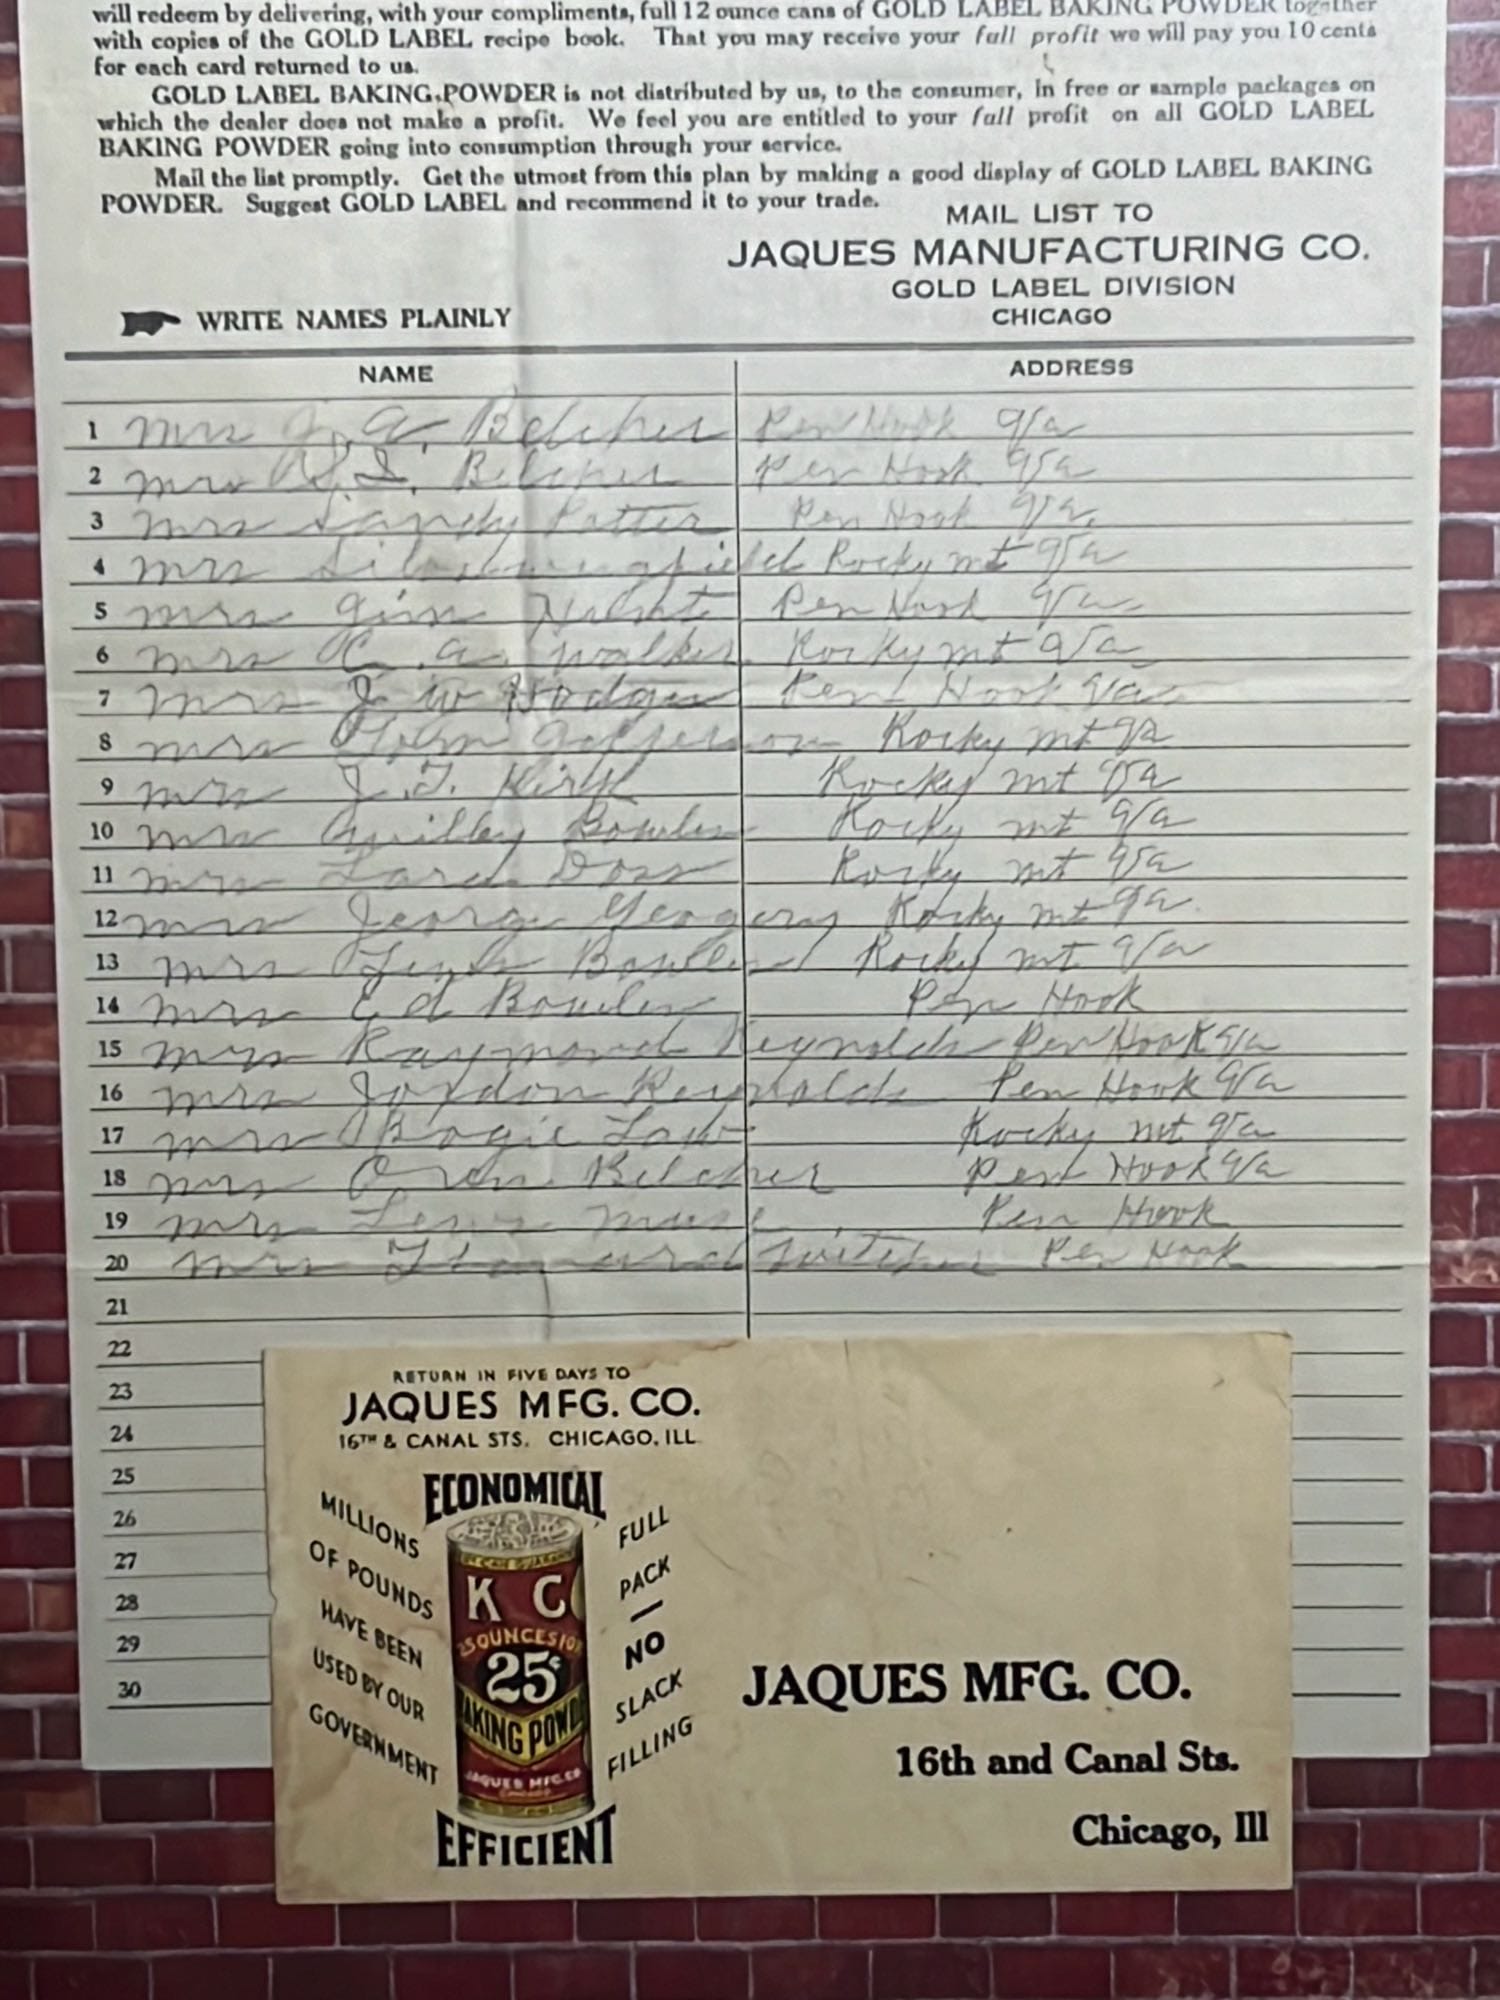 will redeem by delivering, with your compliments, full 12 ounce cans of GOLD LABEL BAKING POWDER together
with copies of the GOLD LABEL recipe book. That you may receive your full profit we will pay you 10 cents
for each card returned to us.
GOLD LABEL BAKING POWDER is not distributed by us, to the consumer, in free or sample packages on
which the dealer does not make a profit. We feel you are entitled to your full profit on all GOLD LABEL
BAKING POWDER going into consumption through your service.
Mail the list promptly. Get the utmost from this plan by making a good display of GOLD LABEL BAKING
POWDER. Suggest GOLD LABEL and recommend it to your trade.
MAIL LIST TO
JAQUES MANUFACTURING CO.
GOLD LABEL DIVISION
CHICAGO
WRITE NAMES PLAINLY
NAME ADDRESS
1 Mrs J. A. Belcher Pen Hook Va
2 Mrs Belcher Pen Hook Va
3 Mrs Sandy Potter Pen Hook Va.
4 Mrs Rocky Mt Va
5 Mrs Jim Pen Hook Va
6 Mrs C. A. Walker Rocky Mt Va
7 Mrs J W Hodges Pen Hook Va
8 Mrs John Rocky Mt Va
9 Mrs J. T. Kirk Rocky Mt Va
10 Mrs Bowles Rocky Mt Va
11 Mrs Doss Rocky Mt Va
12 Mrs George Rocky Mt Va.
13 Mrs Rocky Mt Va
14 Mrs Ed Bowles Pen Hook
15 Mrs Raymond Reynolds Pen Hook Va
16 Mrs Jordon Reynolds Pen Hook Va
17 Mrs Law Rocky Mt Va
18 Mrs Oren Belcher Pen Hook Va
19 Mrs Pen Hook
20 Mrs Pen Hook
21
22
23
24
25
26
27
28
29
30
RETURN IN FIVE DAYS TO
JAQUES MFG. CO.
16TH & CANAL STS. CHICAGO, ILL.
ECONOMICAL
MILLIONS
OF POUNDS
HAVE BEEN
USED BY OUR
GOVERNMENT
KC
25 OUNCES FOR
25¢
BAKING POWD
JAQUES MFG. CO
FULL
PACK
—
NO
SLACK
FILLING
EFFICIENT
JAQUES MFG. CO.
16th and Canal Sts.
Chicago, Ill